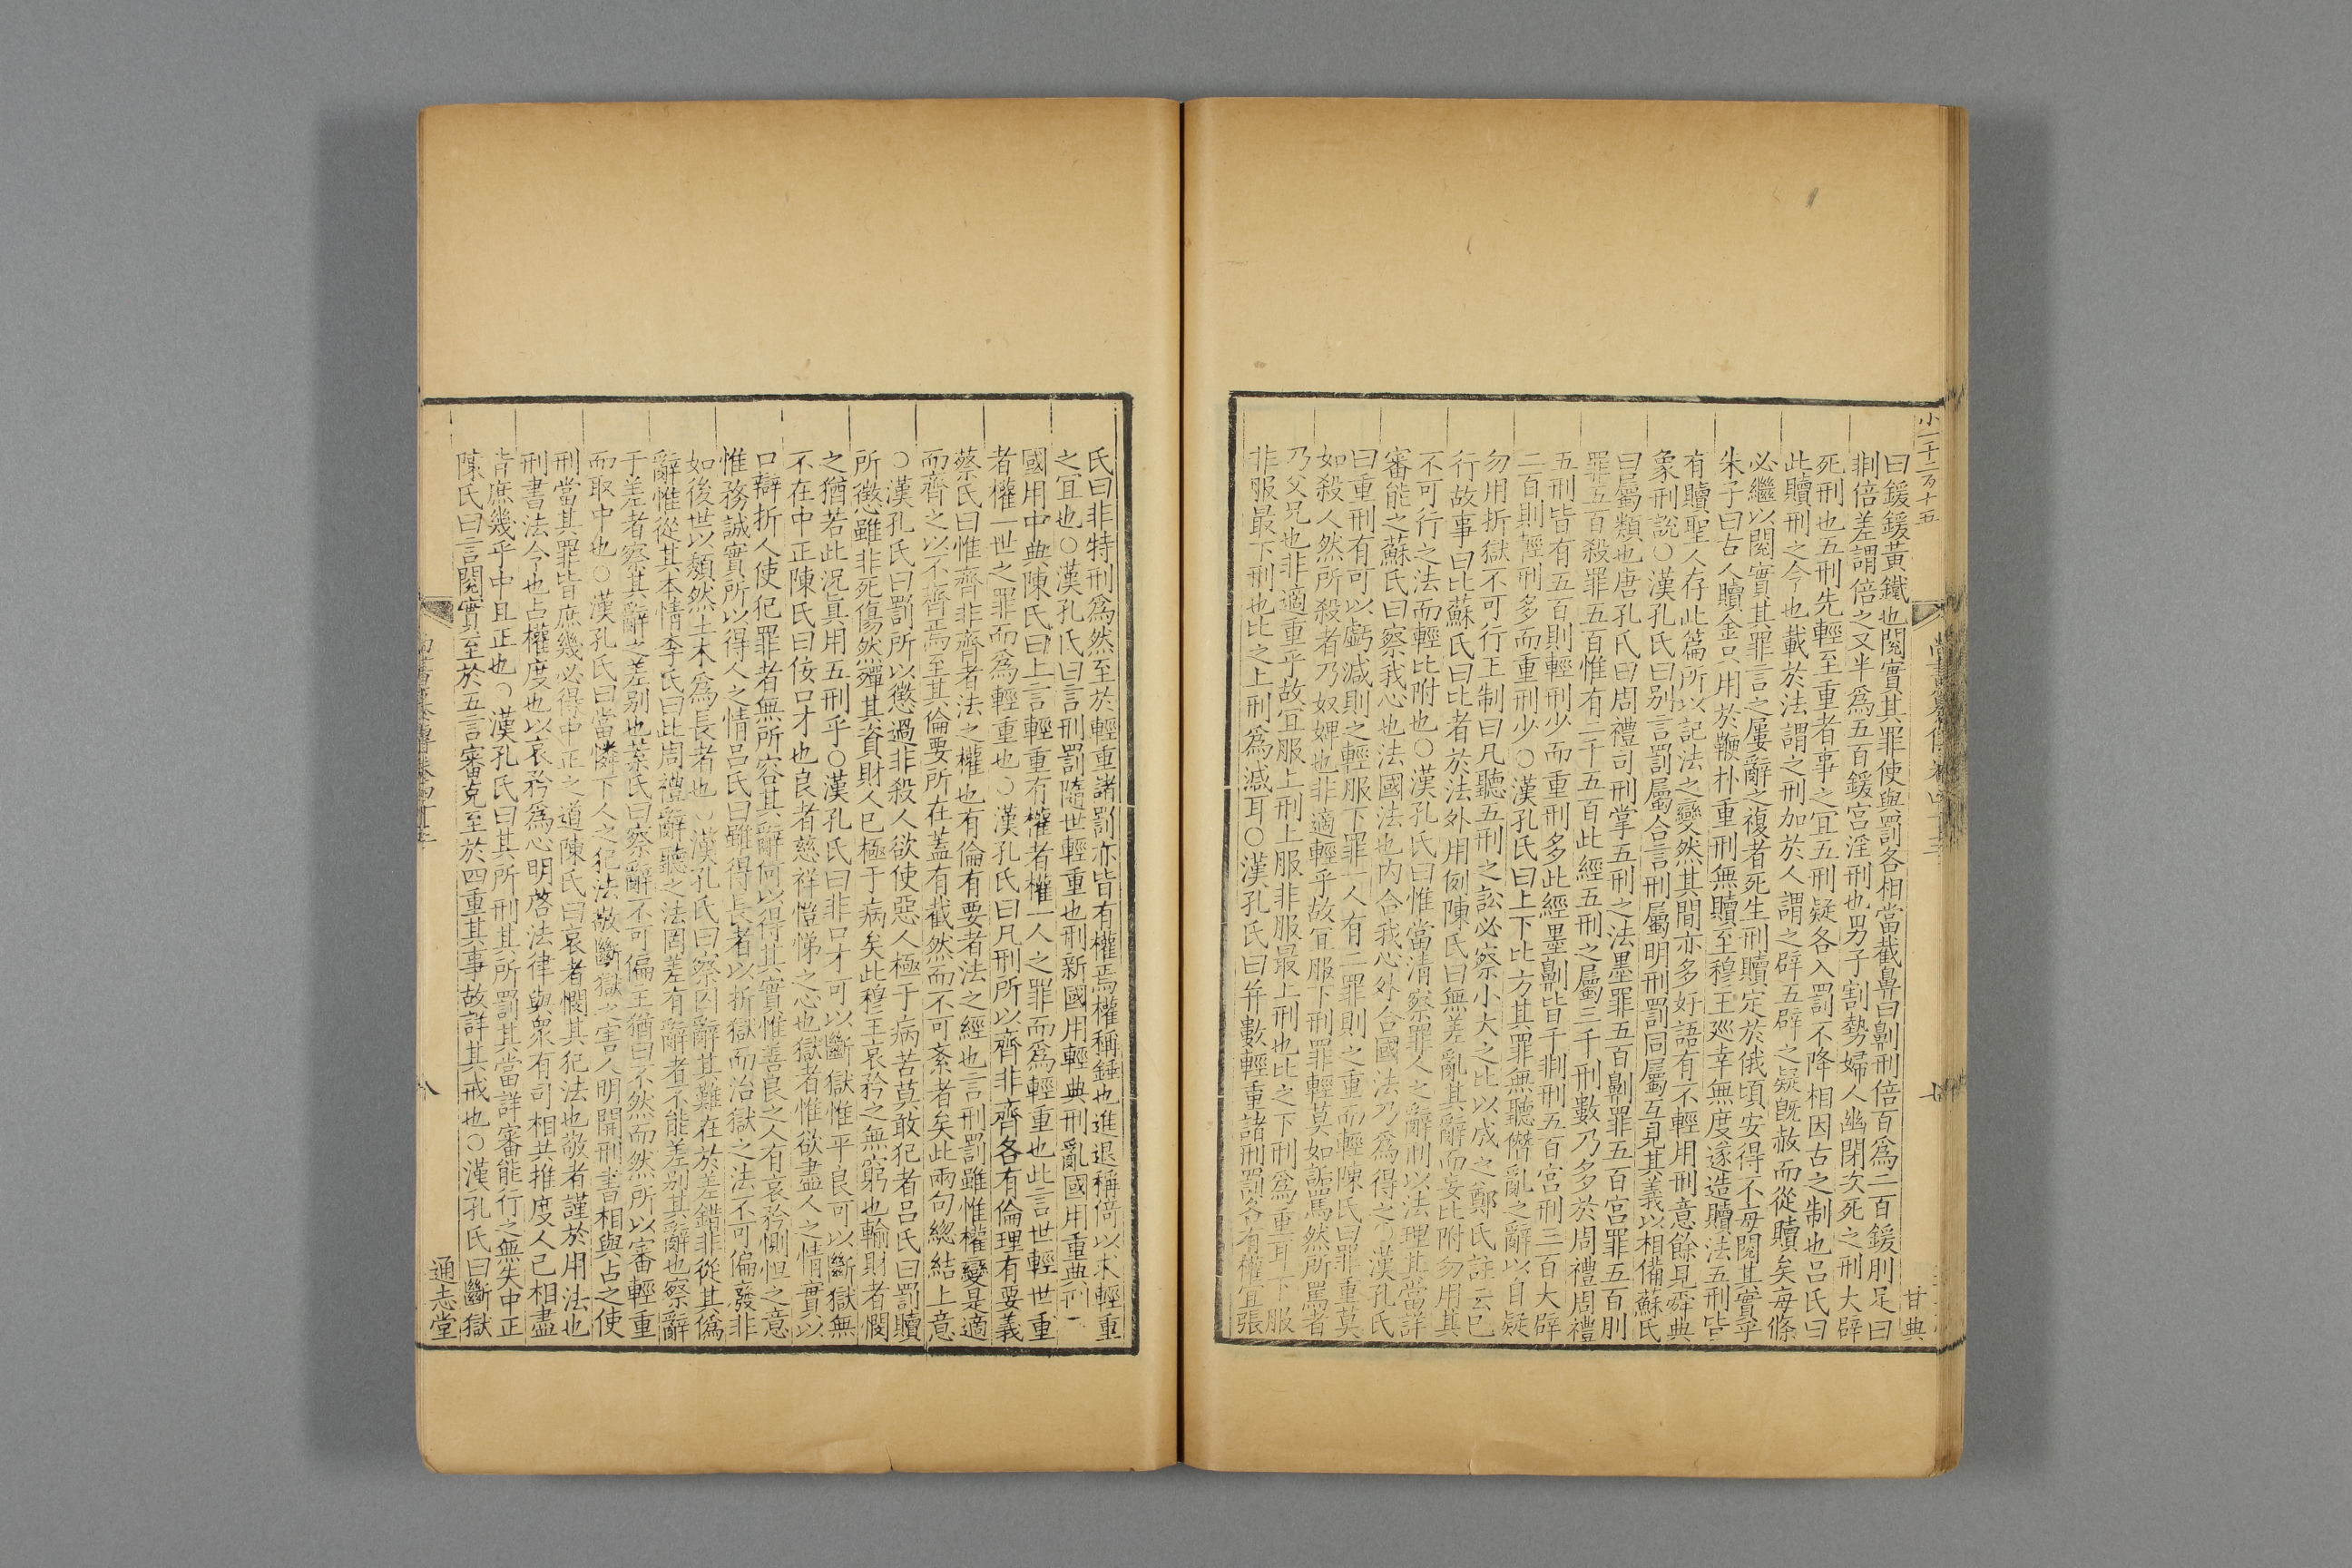 小一千二百十五
尚書纂傳卷四十三
七
甘典
曰鍰鍰黃鐵也閱實其罪使與罰各相當截鼻曰劓刑倍百爲二百鍰刖足曰
剕倍差謂倍之又半爲五百鍰宮淫刑也男子割勢婦人幽閉次死之刑大辟
死刑也五刑先輕至重者事之宜五刑疑各入罰不降相因古之制也呂氏曰
此贖刑之令也載於法謂之刑加於人謂之辟五辟之疑旣赦而從贖矣每條
必繼以閱實其罪言之屢辭之複者死生刑贖定於俄頃安得不每閱其實乎
朱子曰古人贖金只用於鞭朴重刑無贖至穆王廵幸無度遂造贖法五刑皆
有贖聖人存此篇所以記法之變然其間亦多好語有不輕用刑意餘見舜典
象刑說○漢孔氏曰別言罰屬合言刑屬明刑罰同屬互見其義以相備蘇氏
曰屬類也唐孔氏曰周禮司刑掌五刑之法墨罪五百劓罪五百宮罪五百刖
罪五百殺罪五百惟有二千五百此經五刑之屬三千刑數乃多於周禮周禮
五刑皆有五百則輕刑少而重刑多此經墨劓皆千剕刑五百宮刑三百大辟
二百則輕刑多而重刑少○漢孔氏曰上下比方其罪無聽僭亂之辭以自疑
勿用折獄不可行王制曰凡聽五刑之訟必察小大之比以成之鄭氏註云已
行故事曰比蘇氏曰比者於法外用例陳氏曰無差亂其辭而妄比附勿用其
不可行之法而輕比附也○漢孔氏曰惟當清察罪人之辭附以法理其當詳
審能之蘇氏曰察我心也法國法也內合我心外合國法乃爲得之○漢孔氏
曰重刑有可以虧減則之輕服下罪一人有二罪則之重而輕陳氏曰罪重莫
如殺人然所殺者乃奴婢也非適輕乎故宜服下刑罪輕莫如詬罵然所罵者
乃父兄也非適重乎故宜服上刑上服非服最上刑也比之下刑爲重耳下服
非服最下刑也比之上刑爲減耳○漢孔氏曰并數輕重諸刑罰各有權宜張
氏曰非特刑爲然至於輕重諸罰亦皆有權焉權稱錘也進退稱倚以求輕重
之宜也○漢孔氏曰言刑罰隨世輕重也刑新國用輕典刑亂國用重典刑一
國用中典陳氏曰上言輕重有權者權一人之罪而爲輕重也此言世輕世重
者權一世之罪而爲輕重也○漢孔氏曰凡刑所以齊非齊各有倫理有要義
蔡氏曰惟齊非齊者法之權也有倫有要者法之經也言刑罰雖惟權變是適
而齊之以不齊焉至其倫要所在蓋有截然而不可紊者矣此兩句總結上意
○漢孔氏曰罰所以懲過非殺人欲使惡人極于病苦莫敢犯者呂氏曰罰贖
所懲雖非死傷然殫其資財人已極于病矣此穆王哀矜之無窮也輸財者閔
之猶若此況眞用五刑乎○漢孔氏曰非口才可以斷獄惟平良可以斷獄無
不在中正陳氏曰佞口才也良者慈祥愷悌之心也獄者惟欲盡人之情實以
口辯折人使犯罪者無所容其辭何以得其實惟善良之人有哀矜惻怛之意
惟務誠實所以得人之情呂氏曰雖得長者以折獄而治獄之法不可偏廢非
如後世以頹然土木爲長者也○漢孔氏曰察囚辭其難在於差錯非從其僞
辭惟從其本情李氏曰此周禮辭聽之法囚差有辭者不能差別其辭也察辭
于差者察其辭之差別也葉氏曰察辭不可偏主猶曰不然而然所以審輕重
而取中也○漢孔氏曰當憐下人之犯法敬斷獄之害人明開刑書相與占之使
刑當其罪皆庶幾必得中正之道陳氏曰哀者憫其犯法也敬者謹於用法也
刑書法令也占權度也以哀矜爲心明啓法律與衆有司相共推度人已相盡
皆庶幾乎中且正也○漢孔氏曰其所刑其所罰其當詳審能行之無失中正
陳氏曰言閱實至於五言審克至於四重其事故詳其戒也○漢孔氏曰斷獄
尚書纂傳卷四十三
八
通志堂